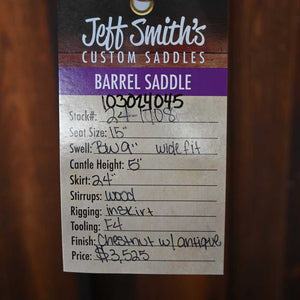 Jeff Smith's
CUSTOM SADDLES
BARREL SADDLE
103024045
Stock#: 24-1708
Seat Size: 15"
Swell: BW 9" wide fit
Cantle Height: 5"
Skirt: 24"
Stirrups: wood
Rigging: inskirt
Tooling: F4
Finish: Chestnut w/ antique
Price: $3,525